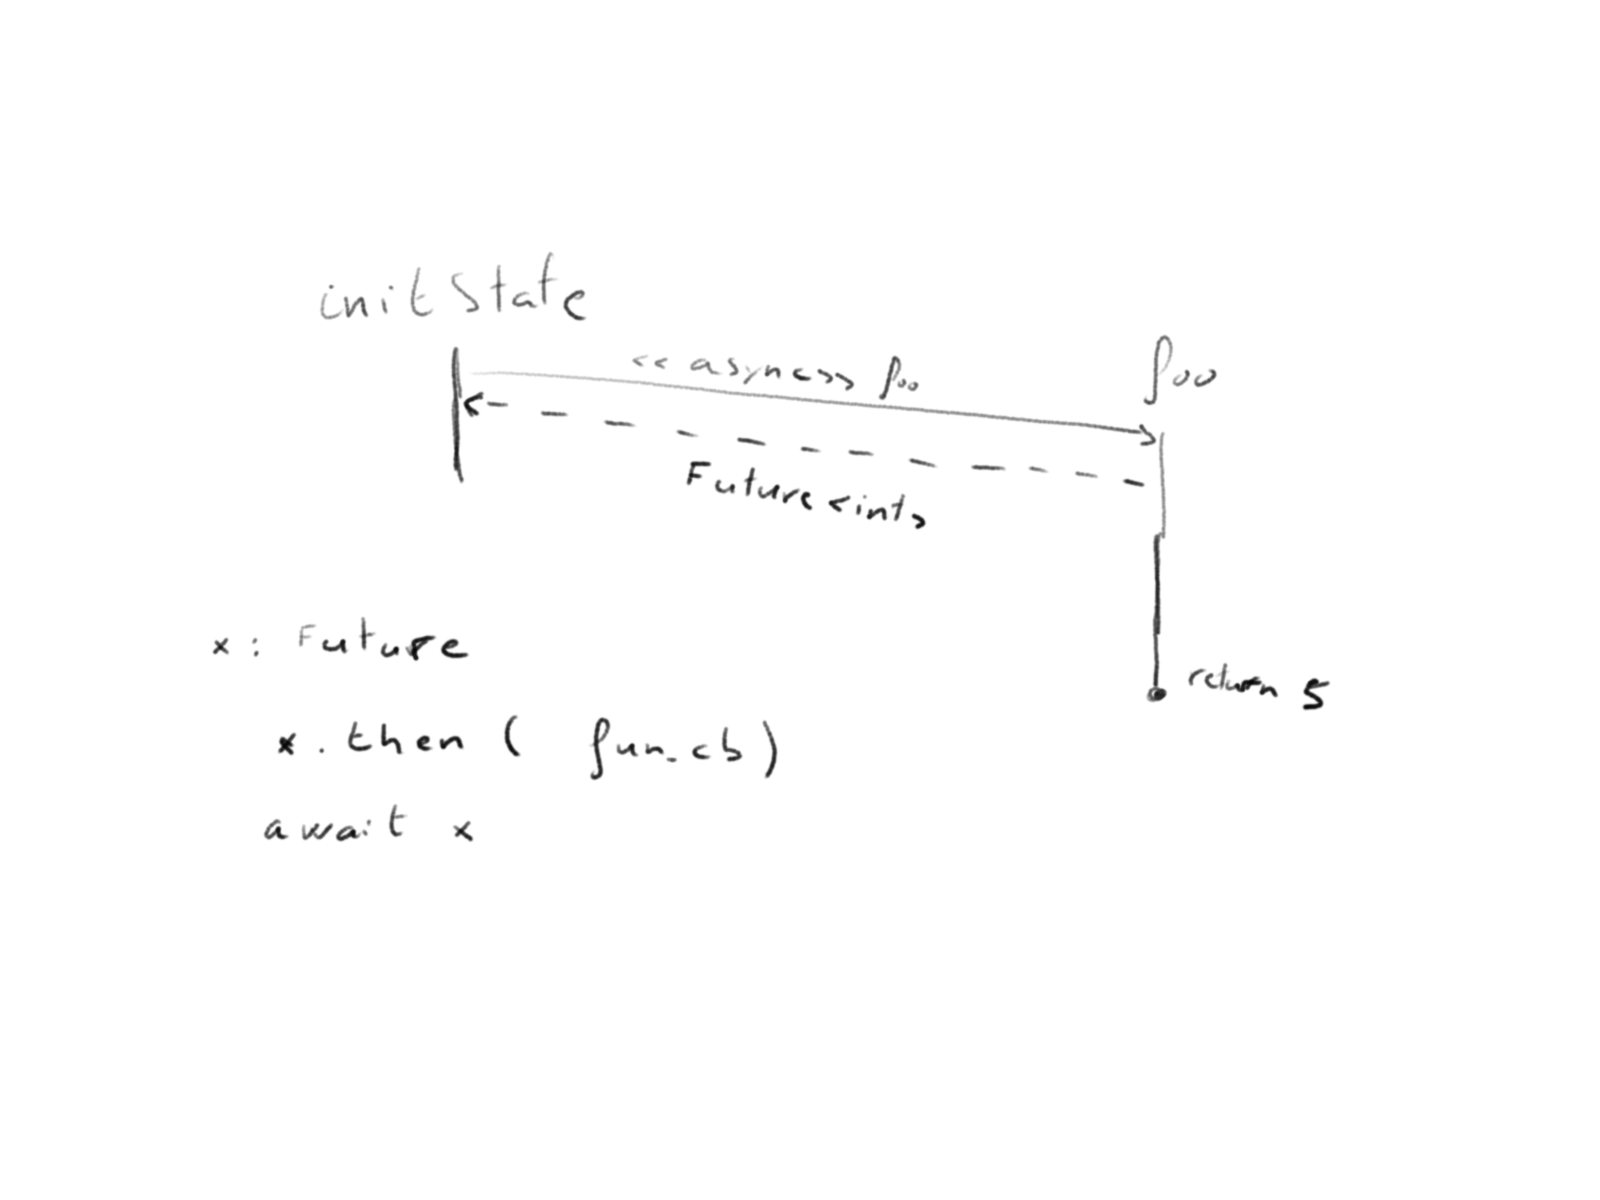 initState
<<async>> foo
foo
Future<int>
x : Future
return 5
x.then ( fun_cb)
await x